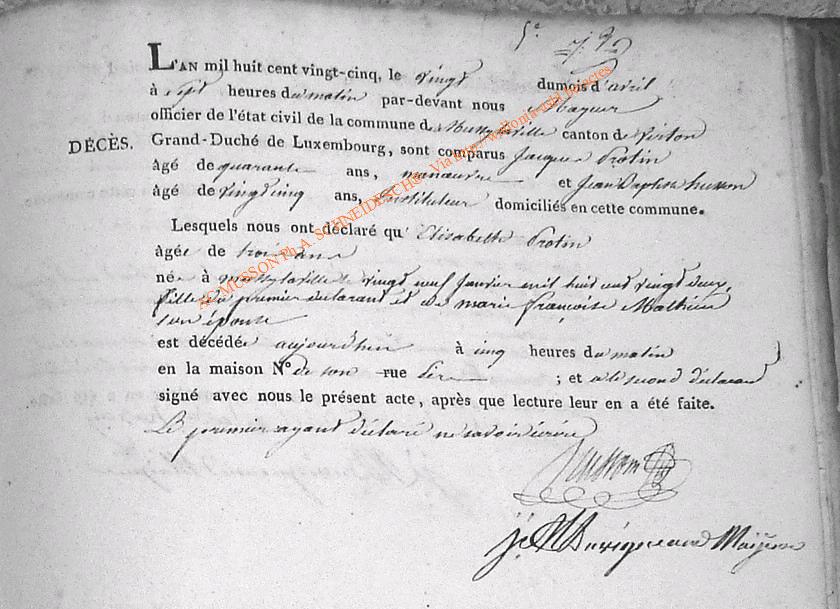 5e
L'AN mil huit cent vingt-cinq, le vingt du mois d'avril
à sept heures du matin par-devant nous Mayeur
officier de l'état civil de la commune de Mussylaville canton de Virton
DÉCÈS.
Grand-Duché de Luxembourg, sont comparus Jacques Protin
âgé de quarante ans, manœuvre et Jean Baptiste husson
âgé de vingt cinq ans, Instituteur domiciliés en cette commune.
Lesquels nous ont déclaré qu' Elisabeth Protin
âgée de trois ans
née à mussylaville le vingt neuf Janvier mil huit cent vingt deux,
fille du premier declarant et de marie françoise Mathieu
son épouse
est décédée aujourd'hui à cinq heures du matin
en la maison N° de son rue ; et a le second déclarant
signé avec nous le présent acte, après que lecture leur en a été faite.
Le premier ayant déclaré ne savoir écrire
husson
Mayeur
AC MUSSON Ph A. SCHNEIDESCH Via